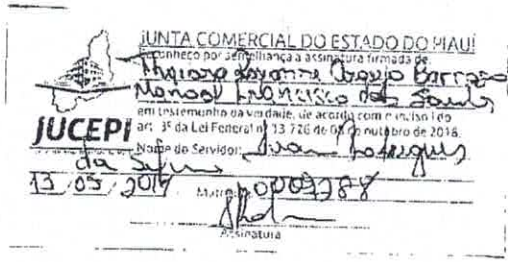 JUNTA COMERCIAL DO ESTADO DO PIAUÍ
Reconheço por semelhança a assinatura firmada de
Araujo Barroso
Manoel Francisco dos Santos
em testemunho da verdade, de acordo com o inciso I do
art. 3º da Lei Federal nº 13.726 de 08 de outubro de 2018.
JUCEPI
Nome do Servidor: Rodrigues
da Silva
13/05/2019
Assinatura